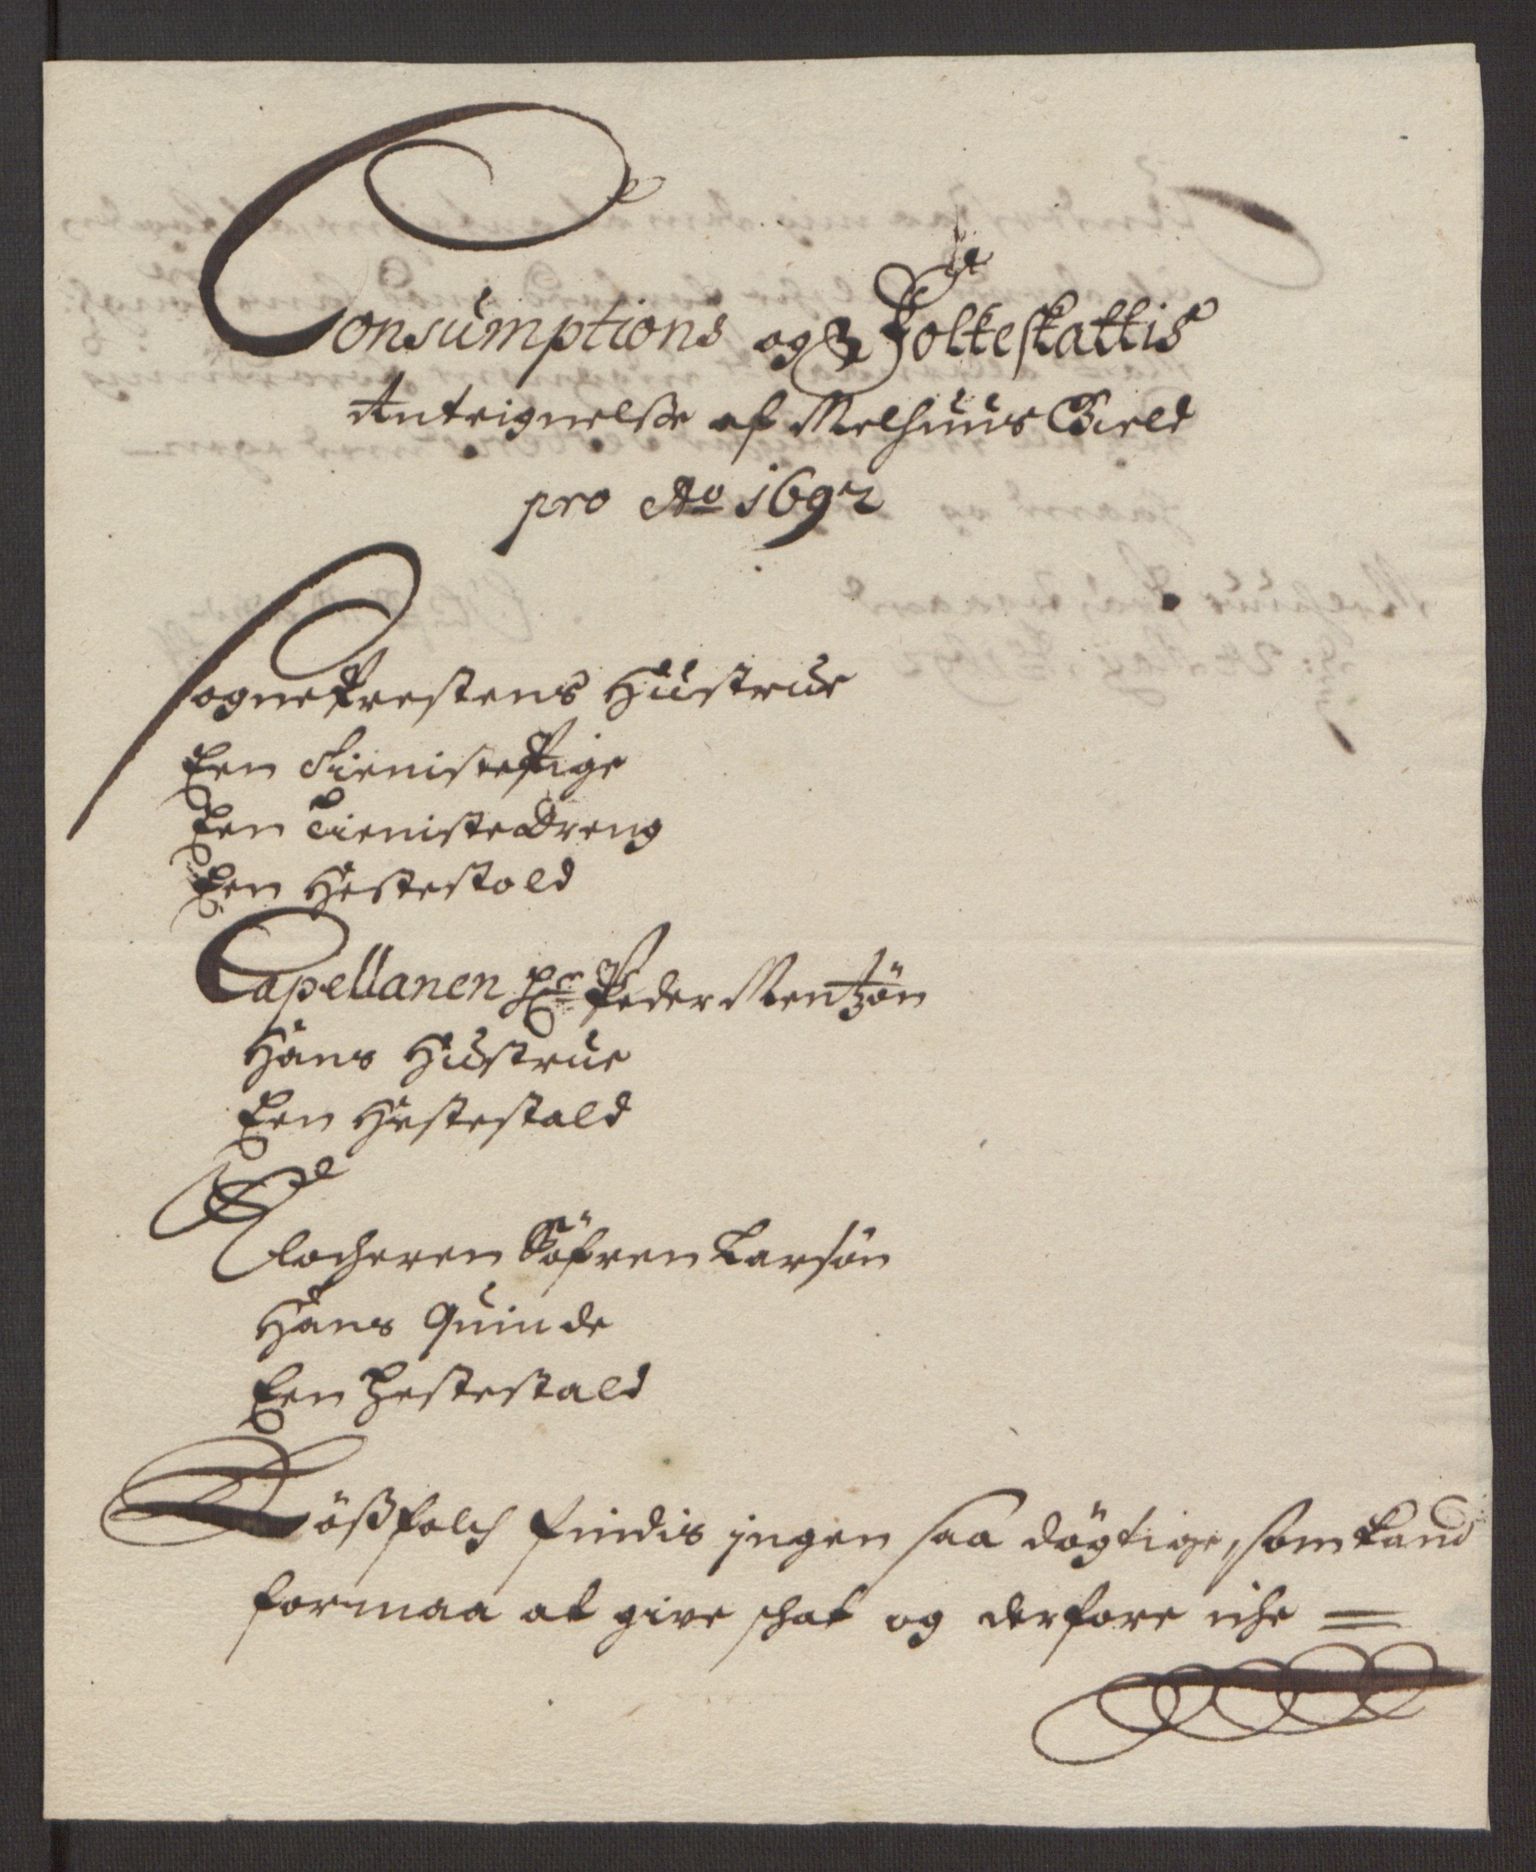 Consumptions og Folkeskattis
Anteignelse af Melhuus Gield
pro Ao 1692
SognePrestens Hustrue
Een TienistePige
Een TienisteDreng
Een Hestestold
Capellanen Hr Peder Mentzøn
Hans Hustrue
Een Hestestald
Klocheren Søfren Larsøn
Hans Quinde
Een Hestestald
Løssfolch findis ingen saa døgtige, som kand
formaa at give schat og derfore iche =